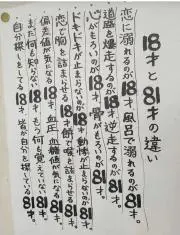 18才と81才の違い
恋に溺れるのが18才、風呂で溺れるのが81才。
道路を爆走するのが18才、逆走するのが81才。
心がもろいのが18才、骨がもろいのが81才。
ドキドキが止まらないのが18才、動悸が止まらないのが81才。
恋で胸を詰まらせる18才、餅で喉を詰まらせる81才。
偏差値が気になる18才、血圧・血糖値が気になる81才。
まだ何も知らない18才、もう何も覚えていない81才。
自分探しをしてる18才、皆が自分を探している81才。